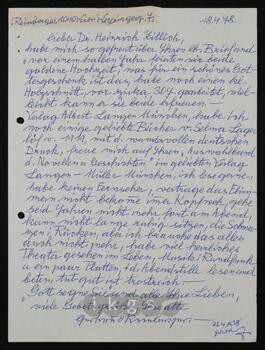 18.4.78.
lieber Dr. Heinrich Zillich,
habe mich so gefreut über Ihren lb. Brief und
vor einem halben Jahr feierten sie beide
goldene Hochzeit, was für ein schönes Got-
tesgeschenk ist das, habe noch einen kl.
Holzschnitt, vor zirka 30 J. gearbeitet, viel-
leicht kann er sie beide erfreuen. –
Verlag Albert Langen München, habe ich
noch einige geliebte Bücher v. Selma Lager
löf v. mit d. wundervollen deutschen
Druck, freue mich auf Ihren Auswahlband
d. Novellen u Geschichten" im geliebten Verlag
Langen – Müller München, ich lese gerne,
habe keinen Fernseher, vertrage das Flim-
mern nicht bekomme in Kopfweh, gehe
seid Jahren nicht mehr fort am Abend,
kann nicht lange ruhig sitzen, die Schmer-
zen, aber ich brauche das alles
auch nicht mehr, habe viel herrliches
Theater gesehen im Leben, Musik i Rundfunk
u ein paar Platten, i d. Abendstille lesen und
beten, tut gut ist trostreich.
Gott segne Sie und alle Ihre Lieben,
viele liebe Grüße
22.4.78